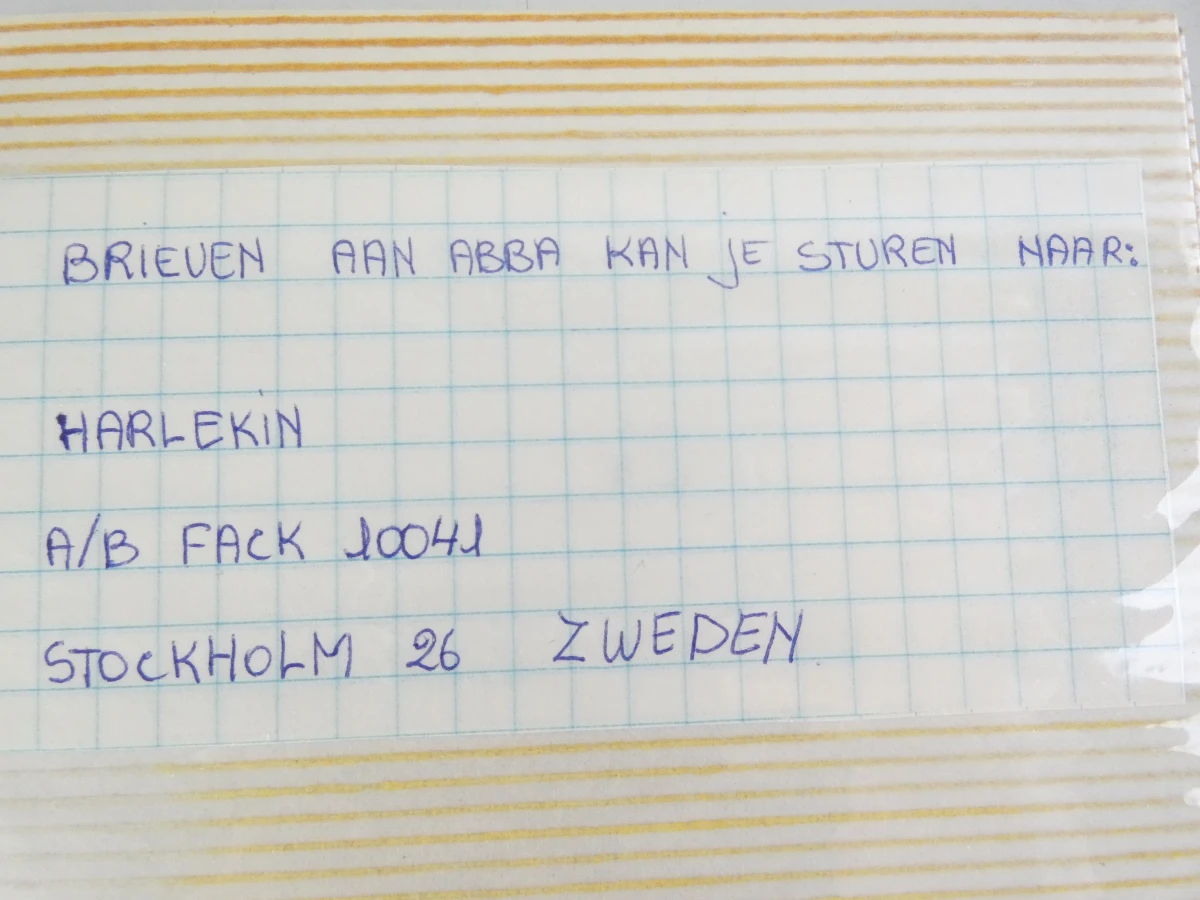 BRIEVEN AAN ABBA KAN JE STUREN NAAR:
HARLEKIN
A/B FACK 10041
STOCKHOLM 26 ZWEDEN